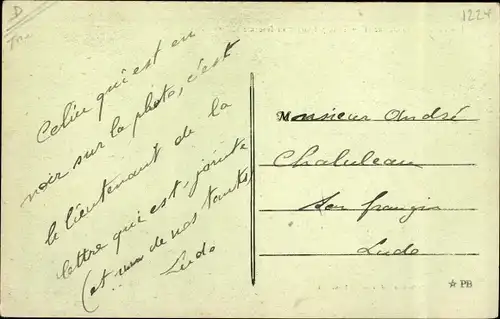 D
1224
Celui qui est en
noir sur la photo, c'est
le lieutenant de la
lettre qui est jointe
(et un de nos tantes)
Ludo
Monsieur André
Chaluleau
son français
Ludo
☆ PB